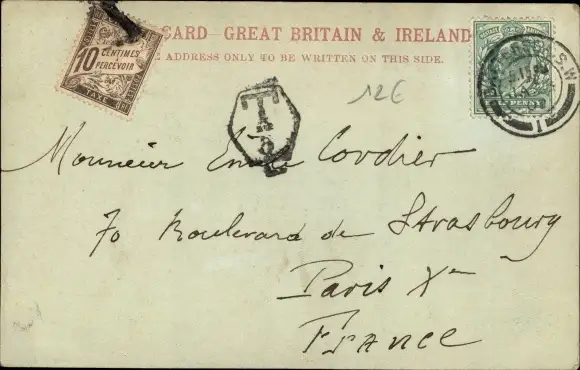 CARD - GREAT BRITAIN & IRELAND
ADDRESS ONLY TO BE WRITTEN ON THIS SIDE.
10
CENTIMES
À
PERCEVOIR
TAXE
PENNY
S.W
1
T
12€
Monsieur Emile Cordier
70 Boulevard de Strasbourg
Paris Xme
France